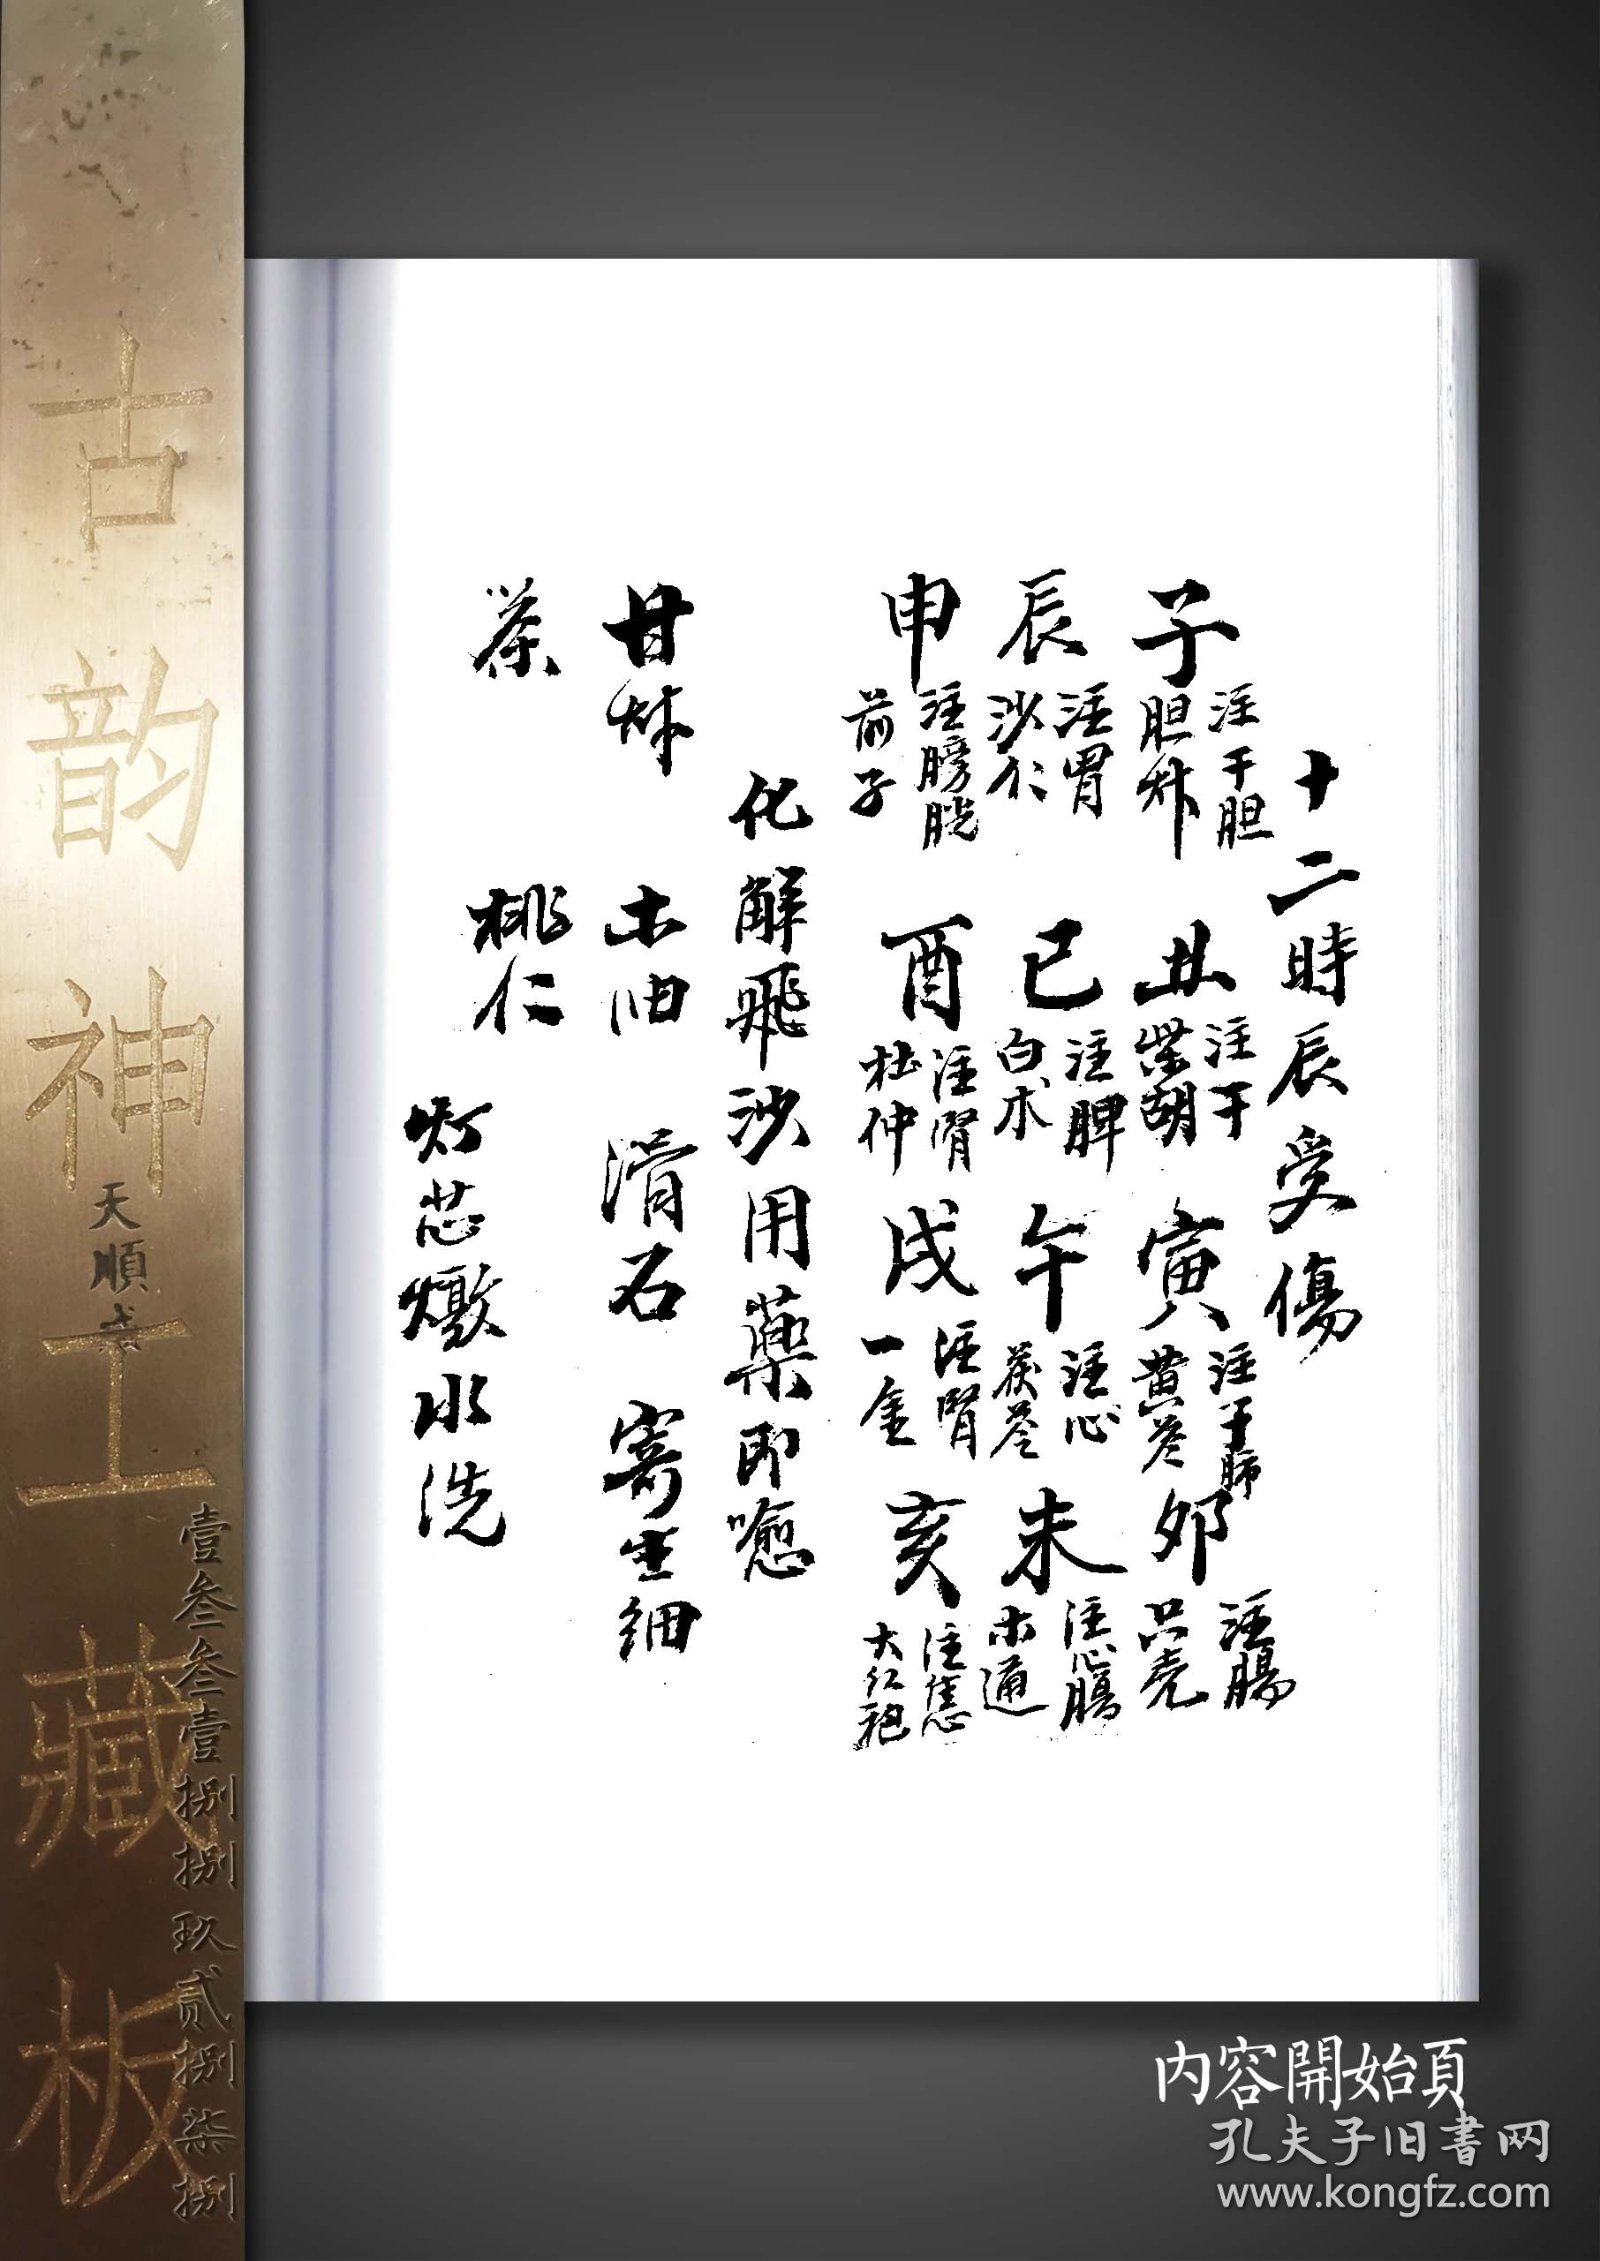 十二時辰受傷
子 注干胆 胆草 丑 注干 柴胡 寅 注于肺 黄芩 卯 注腸 只壳
辰 注胃 沙仁 巳 注脾 白术 午 注心 茯苓 未 注心腸 木通
申 注膀胱 前子 酉 注腎 杜仲 戌 注腎 一金 亥 注焦心 大紅袍
化解飛沙用藥即癒
甘草 木油 滑石 寄生 細
茶 桃仁
灯芯燉水洗
古韵神工藏板
天順
壹叁叁壹捌捌玖贰捌柒捌
内容開始頁
孔夫子旧書网
www.kongfz.com